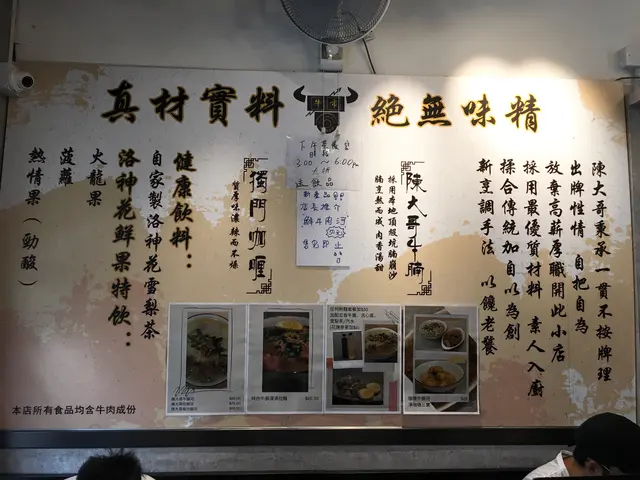 真材實料
牛味
絕無味精
陳大哥秉承一貫不按牌理
出牌性情 自把自為
放棄高薪厚職開此小店
採用最優質材料 素人入廚
揉合傳統加自以為創
新烹調手法 以饒老饕
陳大哥牛腩
採用本地頂級坑腩崩沙
腩烹熬而成肉香湯甜
下午茶優惠
時段
3:00~6:00
送飲品
新產品
店長推介
鮮牛肉河
售完即止
獨門咖喱
質厚味濃辣而不燥
健康飲料：
自家製洛神花雪梨茶
洛神花鮮果特飲：
火龍果
菠蘿
熱情果（勁酸）
本店所有食品均含牛肉成份